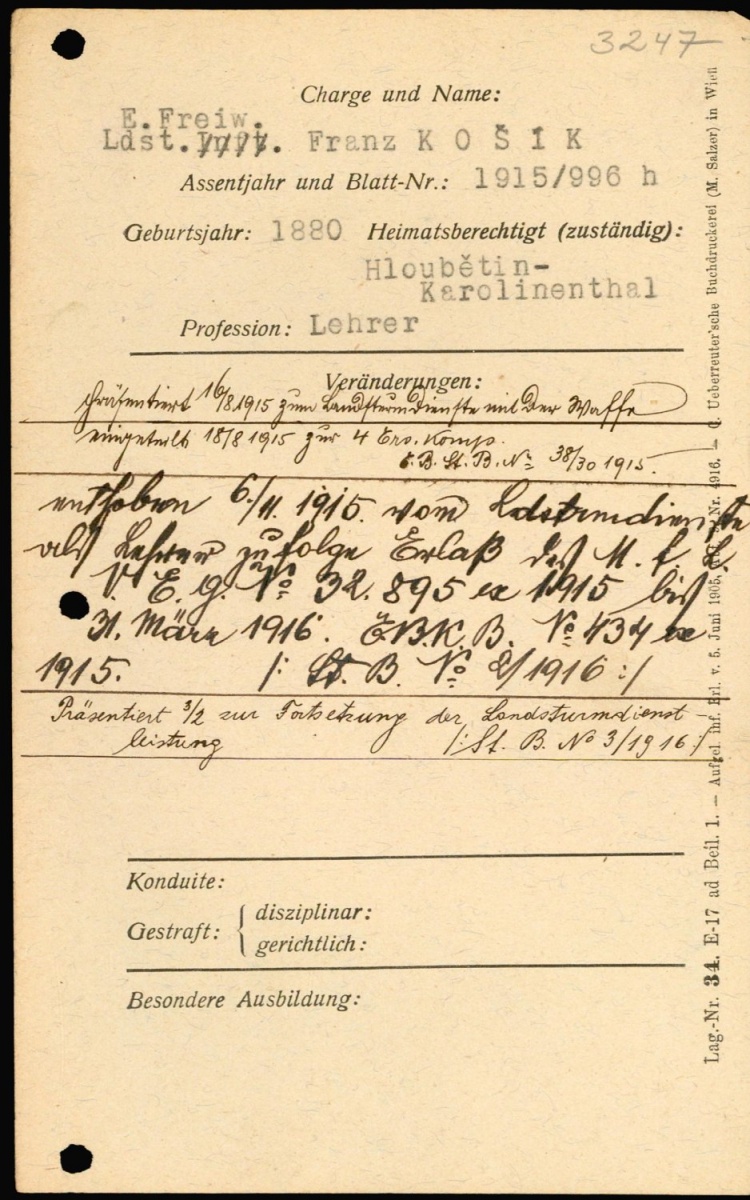 3247
Charge und Name:
E.Freiw.
Ldst. Franz K O Š I K
Assentjahr und Blatt-Nr.: 1915/996 h
Geburtsjahr: 1880 Heimatsberechtigt (zuständig):
Hloubětin-
Karolinenthal
Profession: Lehrer
Veränderungen:
Präsentiert 16/8 1915 zum Landsturmdienste mit der Waffe
eingeteilt 18/8 1915 zur 4 Ers. Komp.
B. St. B. No 38/30 1915.
enthoben 6./11. 1915. vom Ldstrmdienste
als Lehrer zufolge Erlaß des M. f. L.
V. E. g. No 32.895 ex 1915 bis
31. März 1916. E.B.K.B. No 434 ex
1915. /: St. B. No 2/1916 :/
Präsentiert 3/2 zur Fortsetzung der Landsturmdienst-
leistung /: St. B. No 3/1916 :/
Konduite:
Gestraft: { disziplinar:
gerichtlich:
Besondere Ausbildung:
Lag.-Nr. 34. E-17 ad Beil. 1. — Aufgel. inf. Erl. v. 5. Juni 1905, Nr. 4916. — C. Ueberreuter'sche Buchdruckerei (M. Salzer) in Wien